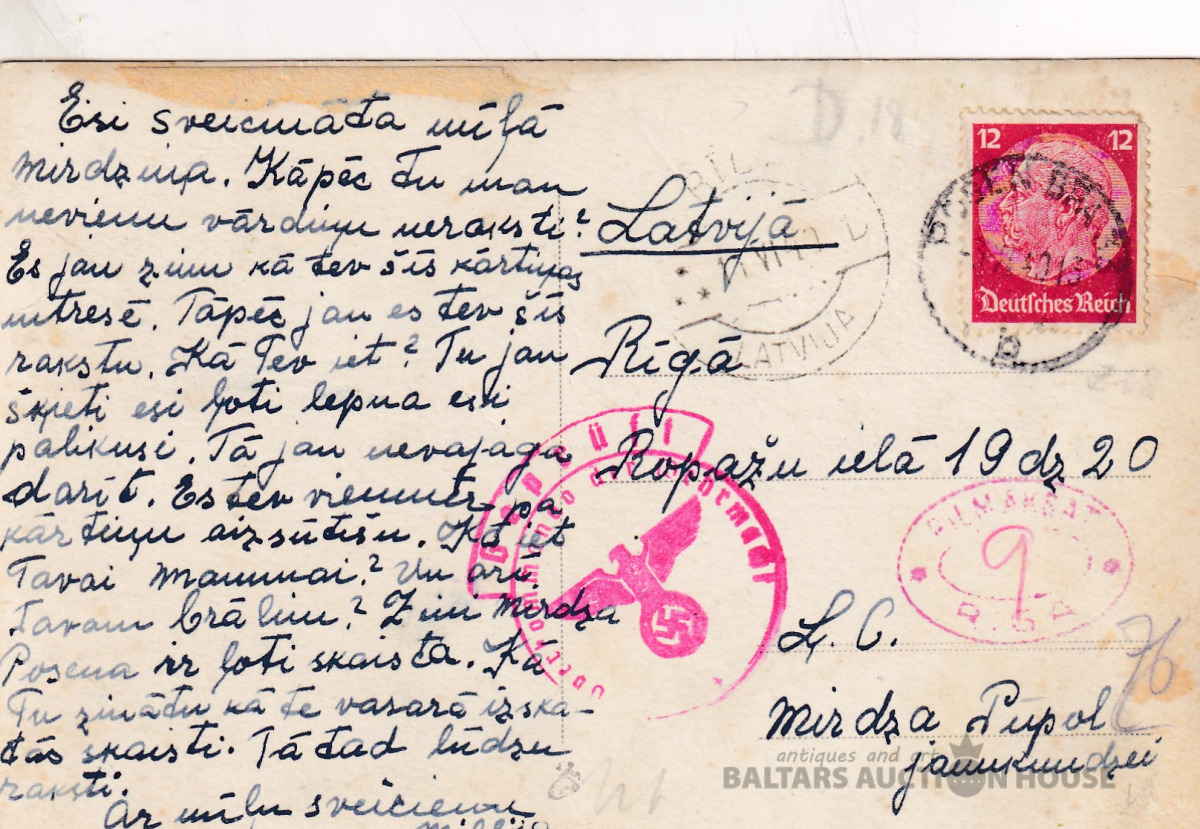 Esi sveicināta mīļā
Mirdziņa. Kāpēc tu man
nevienu vārdiņu neraksti?
Es jau zinu kā tev šīs kārtiņas
intresē. Tāpēc jau es tev šīs
rakstu. Kā Tev iet? Tu jau
šķieti esi ļoti lepna esi
palikusi. Tā jau nevajaga
darīt. Es tev vienmēr pa
kārtiņu aizsūtīšu. Kā iet
Tavai mammai? Un arī
tavam brālim? Zini Mirdza
Posena ir ļoti skaista. Kā
Tu zinātu kā te vasarā izska-
tās skaisti. Tā tad lūdzu
raksti.
Ar mīļu sveicienu
Latvijā
Rīgā
Ropažu ielā 19 dz 20
L. C.
Mirdza Pūpol
jaunkundzei
12 12
Deutsches Reich
POSEN
LATVIJA
Geprüft
Oberkommando der Wehrmacht
PILMAKSAT
9
76
D 18
antiques and art
BALTARS AUCTION HOUSE